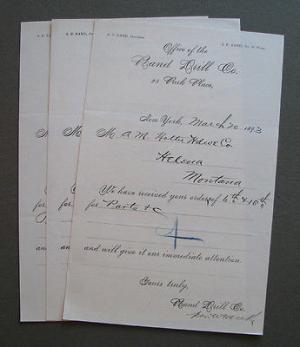 Office of the
Rand Drill Co.
23 Park Place,
New York, March 20 1893
M A. M. Holter Hdwe Co
Helena
Montana
We have received your order of 6th & 10th
for Parts &c
and will give it our immediate attention.
Yours truly,
Rand Drill Co.